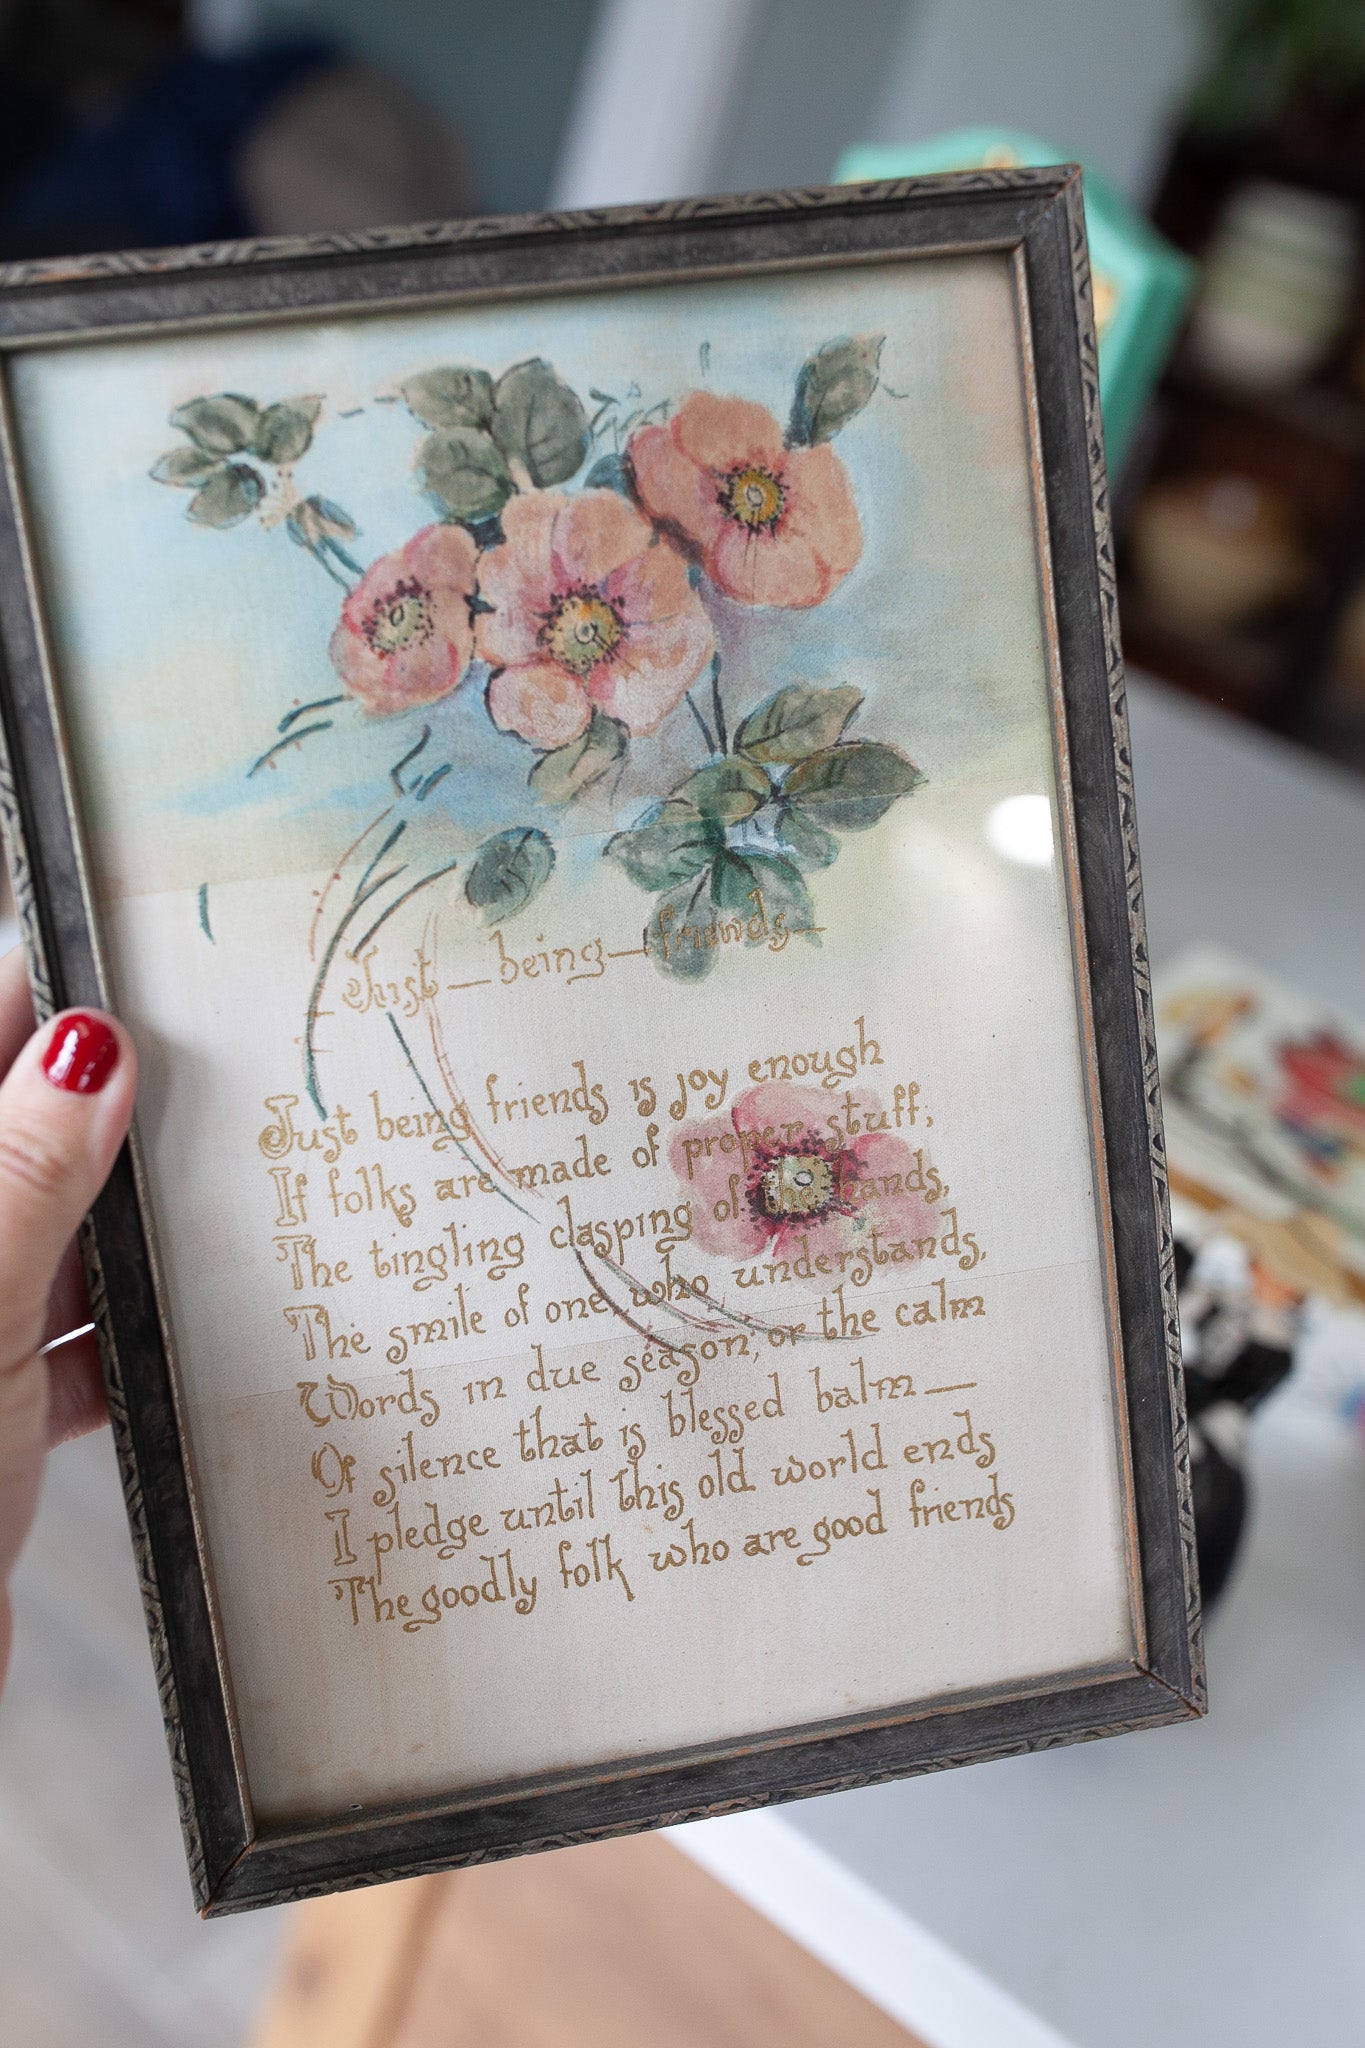 Just — being — friends —
Just being friends is joy enough
If folks are made of proper stuff;
The tingling clasping of the hands,
The smile of one, who understands,
Words in due season; or the calm
Of silence that is blessed balm —
I pledge until this old world ends
The goodly folk who are good friends